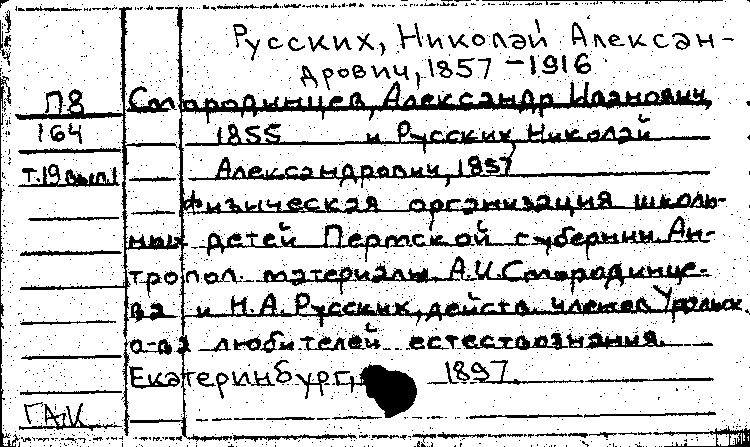 Русских, Николай Алексан-
дрович, 1857-1916
П8 Смородинцев, Александр Иванович,
164 1855 и Русских, Николай
т.19 вып.1 Александрович, 1857
Физическая организация школь-
ных детей Пермской губернии. Ан-
тропол. материалы А.И. Смородинце-
ва и Н.А. Русских, действ. членов Уральск.
о-ва любителей естествознания.
Екатеринбург, 1897.